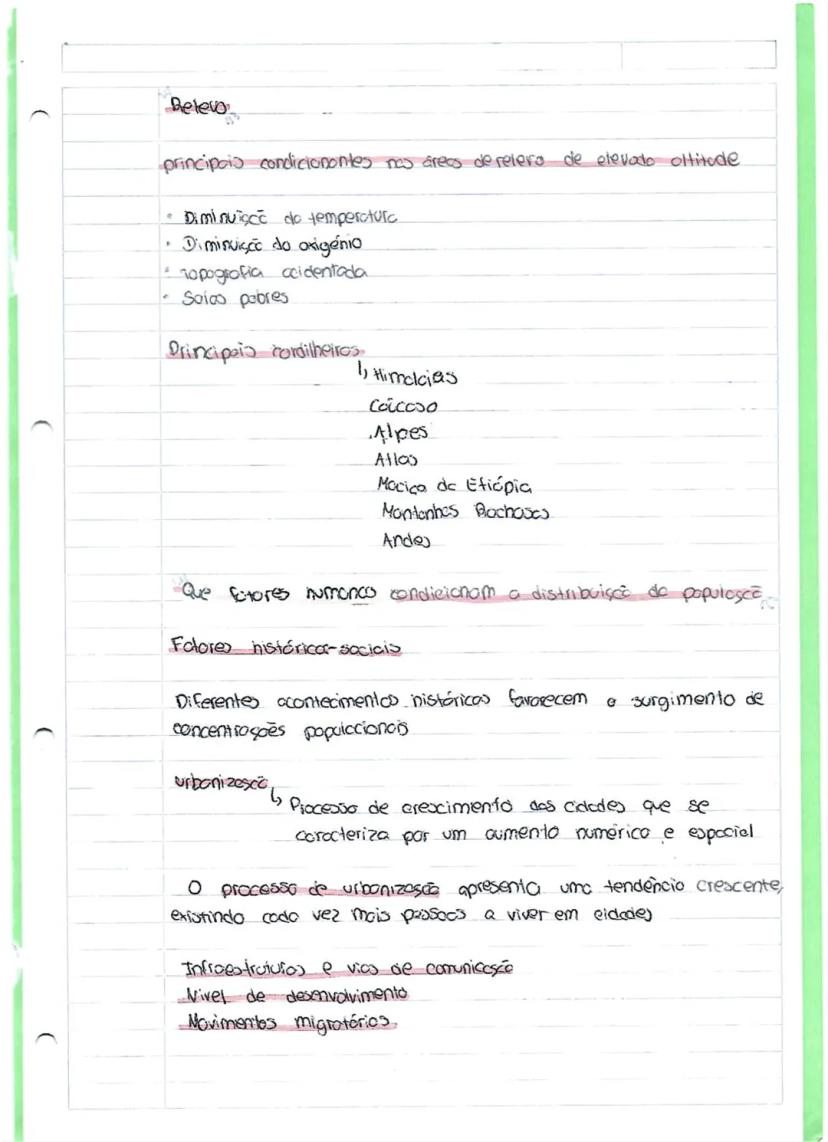 Relevo
principais condicionantes nas áreas de relevo de elevada altitude
• Diminuição da temperatura
• Diminuição do oxigénio
• Topografia acidentada
• Solos pobres
Principais cordilheiras
↳ Himalaias
Cáucaso
Alpes
Atlas
Maciço da Etiópia
Montanhas Rochosas
Andes
Que fatores humanos condicionam a distribuição da população
Fatores histórico-sociais
Diferentes acontecimentos históricos favorecem o surgimento de
concentrações populacionais
urbanização
↳ Processo de crescimento das cidades que se
caracteriza por um aumento numérico e espacial
O processo de urbanização apresenta uma tendência crescente,
existindo cada vez mais pessoas a viver em cidades
Infraestruturas e vias de comunicação
Nível de desenvolvimento
Movimentos migratórios.